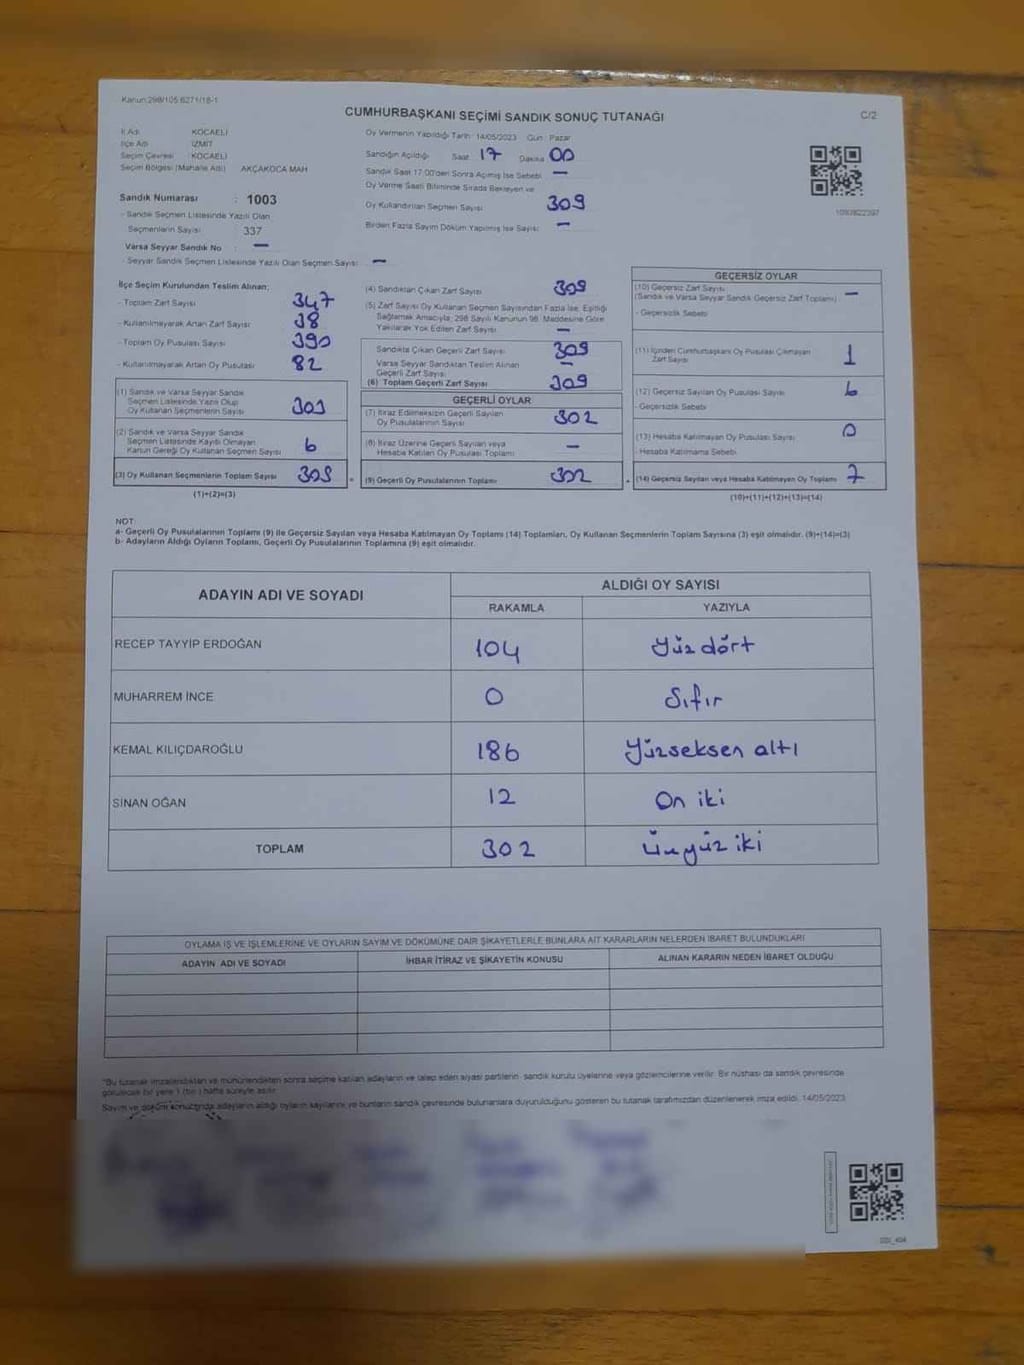 Kanun:298/105 6271/18-1
CUMHURBAŞKANI SEÇİMİ SANDIK SONUÇ TUTANAĞI
C/2
İl Adı KOCAELİ
İlçe Adı İZMİT
Seçim Çevresi : KOCAELİ
Seçim Bölgesi (Mahalle Adı) AKÇAKOCA MAH
Sandık Numarası : 1003
- Sandık Seçmen Listesinde Yazılı Olan
Seçmenlerin Sayısı 337
Varsa Seyyar Sandık No : —
- Seyyar Sandık Seçmen Listesinde Yazılı Olan Seçmen Sayısı —
Oy Vermenin Yapıldığı Tarih : 14/05/2023 Gün : Pazar
Sandığın Açıldığı Saat 17 Dakika 00
Sandık Saat 17.00'den Sonra Açılmış İse Sebebi —
Oy Verme Saati Bitiminde Sırada Bekleyen ve
Oy Kullandırılan Seçmen Sayısı 309
Birden Fazla Sayım Döküm Yapılmış İse Sayısı —
1093822397
İlçe Seçim Kurulundan Teslim Alınan;
- Toplam Zarf Sayısı 347
- Kullanılmayarak Artan Zarf Sayısı 38
- Toplam Oy Pusulası Sayısı 390
- Kullanılmayarak Artan Oy Pusulası 82
(1) Sandık ve Varsa Seyyar Sandık
Seçmen Listesinde Yazılı Olup
Oy Kullanan Seçmenlerin Sayısı 303
(2) Sandık ve Varsa Seyyar Sandık
Seçmen Listesinde Kayıtlı Olmayan
Kanun Gereği Oy Kullanan Seçmen Sayısı 6
(3) Oy Kullanan Seçmenlerin Toplam Sayısı 309
(1)+(2)=(3)
(4) Sandıktan Çıkan Zarf Sayısı 309
(5) Zarf Sayısı Oy Kullanan Seçmen Sayısından Fazla İse, Eşitliği
Sağlamak Amacıyla, 298 Sayılı Kanunun 98. Maddesine Göre
Yakılarak Yok Edilen Zarf Sayısı —
Sandıkta Çıkan Geçerli Zarf Sayısı 309
Varsa Seyyar Sandıktan Teslim Alınan
Geçerli Zarf Sayısı —
(6) Toplam Geçerli Zarf Sayısı 309
GEÇERLİ OYLAR
(7) İtiraz Edilmeksizin Geçerli Sayılan
Oy Pusulalarının Sayısı 302
(8) İtiraz Üzerine Geçerli Sayılan veya
Hesaba Katılan Oy Pusulası Toplamı —
(9) Geçerli Oy Pusulalarının Toplamı 302
GEÇERSİZ OYLAR
(10) Geçersiz Zarf Sayısı
(Sandık ve Varsa Seyyar Sandık Geçersiz Zarf Toplamı) —
- Geçersizlik Sebebi
(11) İçinden Cumhurbaşkanı Oy Pusulası Çıkmayan
Zarf Sayısı 1
(12) Geçersiz Sayılan Oy Pusulası Sayısı 6
- Geçersizlik Sebebi
(13) Hesaba Katılmayan Oy Pusulası Sayısı 0
- Hesaba Katılmama Sebebi
(14) Geçersiz Sayılan veya Hesaba Katılmayan Oy Toplamı 7
(10)+(11)+(12)+(13)=(14)
NOT:
a- Geçerli Oy Pusulalarının Toplamı (9) ile Geçersiz Sayılan veya Hesaba Katılmayan Oy Toplamı (14) Toplamları, Oy Kullanan Seçmenlerin Toplam Sayısına (3) eşit olmalıdır. (9)+(14)=(3)
b- Adayların Aldığı Oyların Toplamı, Geçerli Oy Pusulalarının Toplamına (9) eşit olmalıdır.
ADAYIN ADI VE SOYADI ALDIĞI OY SAYISI
RAKAMLA YAZIYLA
RECEP TAYYİP ERDOĞAN 104 yüz dört
MUHARREM İNCE 0 Sıfır
KEMAL KILIÇDAROĞLU 186 Yüzseksen altı
SİNAN OĞAN 12 On iki
TOPLAM 302 üçyüz iki
OYLAMA İŞ VE İŞLEMLERİNE VE OYLARIN SAYIM VE DÖKÜMÜNE DAİR ŞİKAYETLERLE BUNLARA AİT KARARLARIN NELERDEN İBARET BULUNDUKLARI
ADAYIN ADI VE SOYADI İHBAR İTİRAZ VE ŞİKAYETİN KONUSU ALINAN KARARIN NEDEN İBARET OLDUĞU
"Bu tutanak imzalandıktan ve mühürlendikten sonra seçime katılan adayların ve talep eden siyasi partilerin sandık kurulu üyelerine veya gözlemcilerine verilir. Bir nüshası da sandık çevresinde
görülecek bir yere 1 (bir) hafta süreyle asılır.
Sayım ve döküm sonucunda adayların aldığı oyların sayılarını ve bunların sandık çevresinde bulunanlara duyurulduğunu gösteren bu tutanak tarafımızdan düzenlenerek imza edildi. 14/05/2023